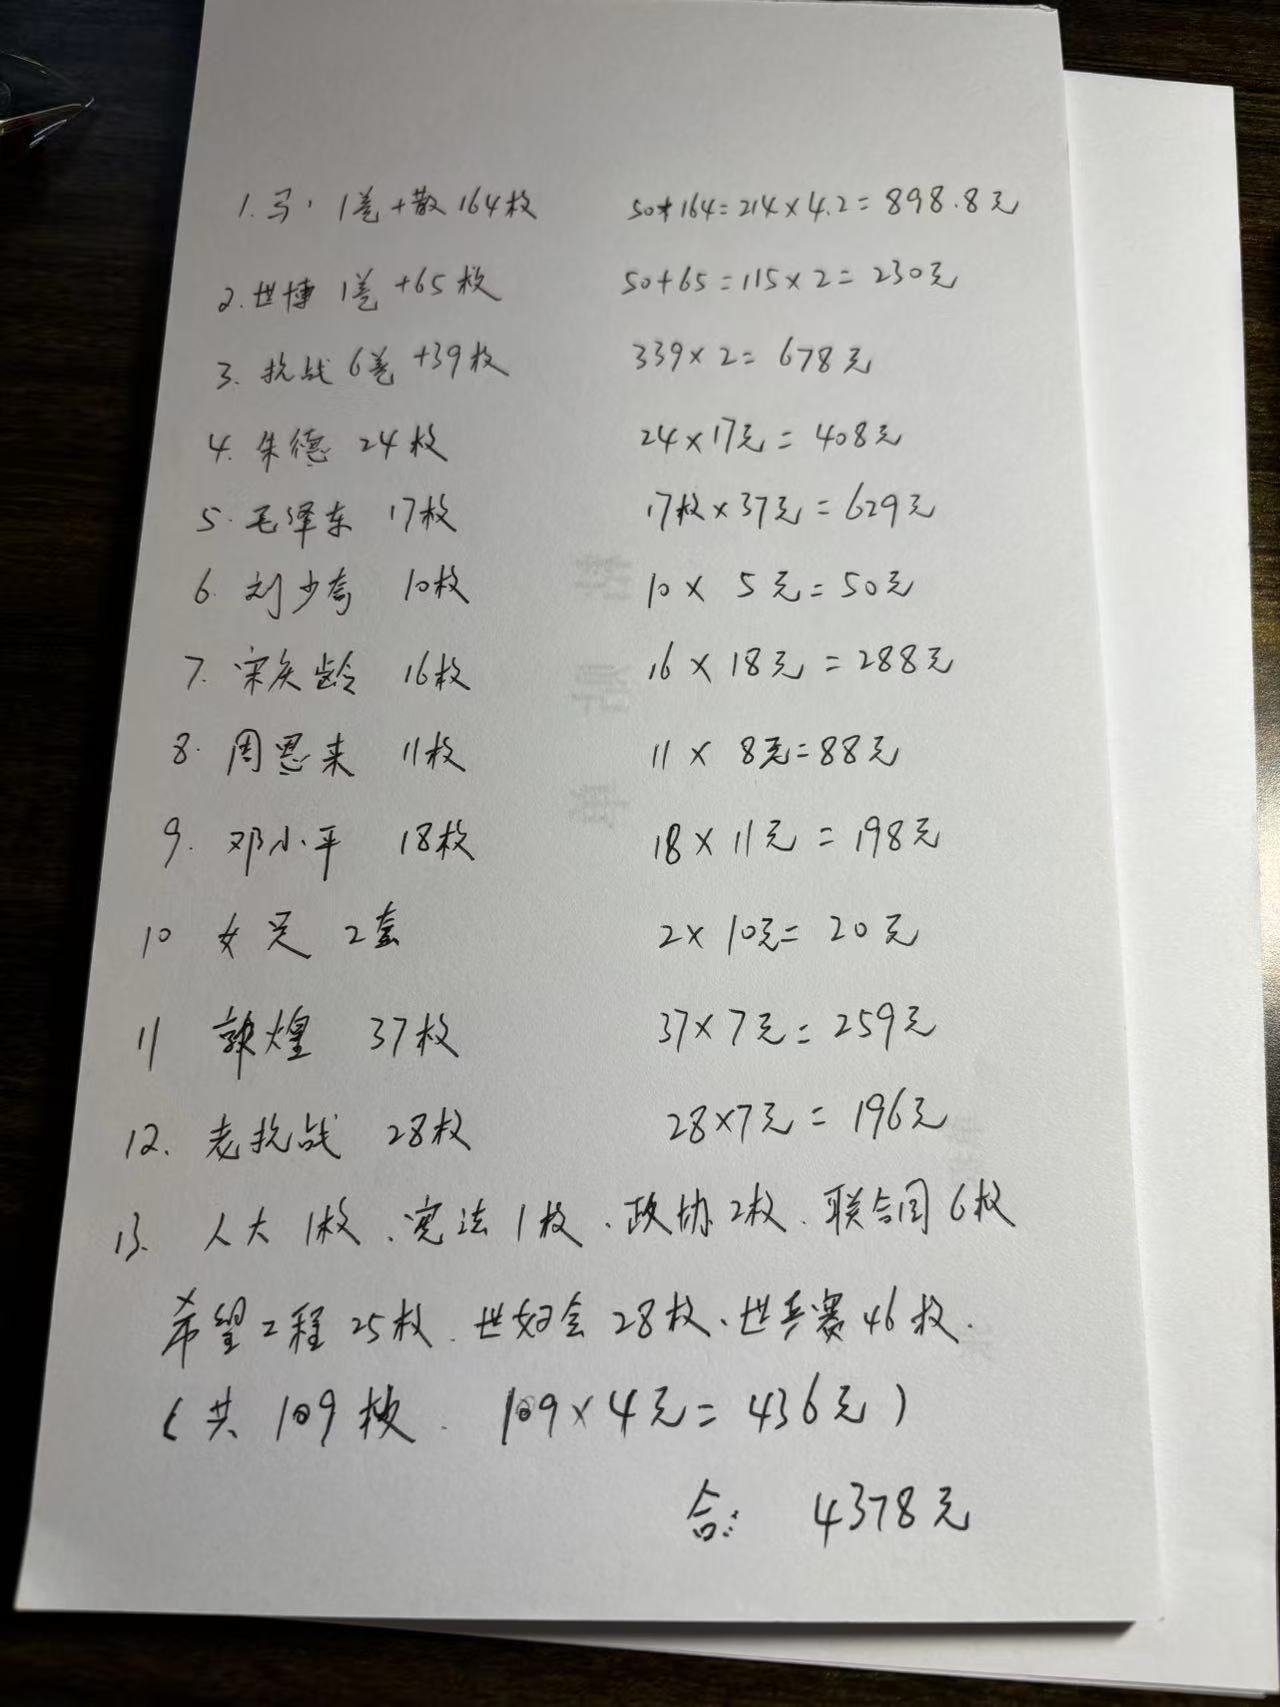 1. 马. 1卷+散164枚 50+164=214×4.2=898.8元
2. 世博 1卷+65枚 50+65=115×2=230元
3. 抗战 6卷+39枚 339×2=678元
4. 朱德 24枚 24×17元=408元
5. 毛泽东 17枚 17枚×37元=629元
6. 刘少奇 10枚 10× 5元=50元
7. 宋庆龄 16枚 16×18元=288元
8. 周恩来 11枚 11× 8元=88元
9. 邓小平 18枚 18×11元=198元
10 女足 2套 2×10元=20元
11 敦煌 37枚 37×7元=259元
12. 老抗战 28枚 28×7元=196元
13. 人大1枚、宪法1枚、政协2枚、联合国6枚
希望工程25枚、世妇会28枚、世乒赛46枚.
(共109枚. 109×4元=436元)
合: 4378元